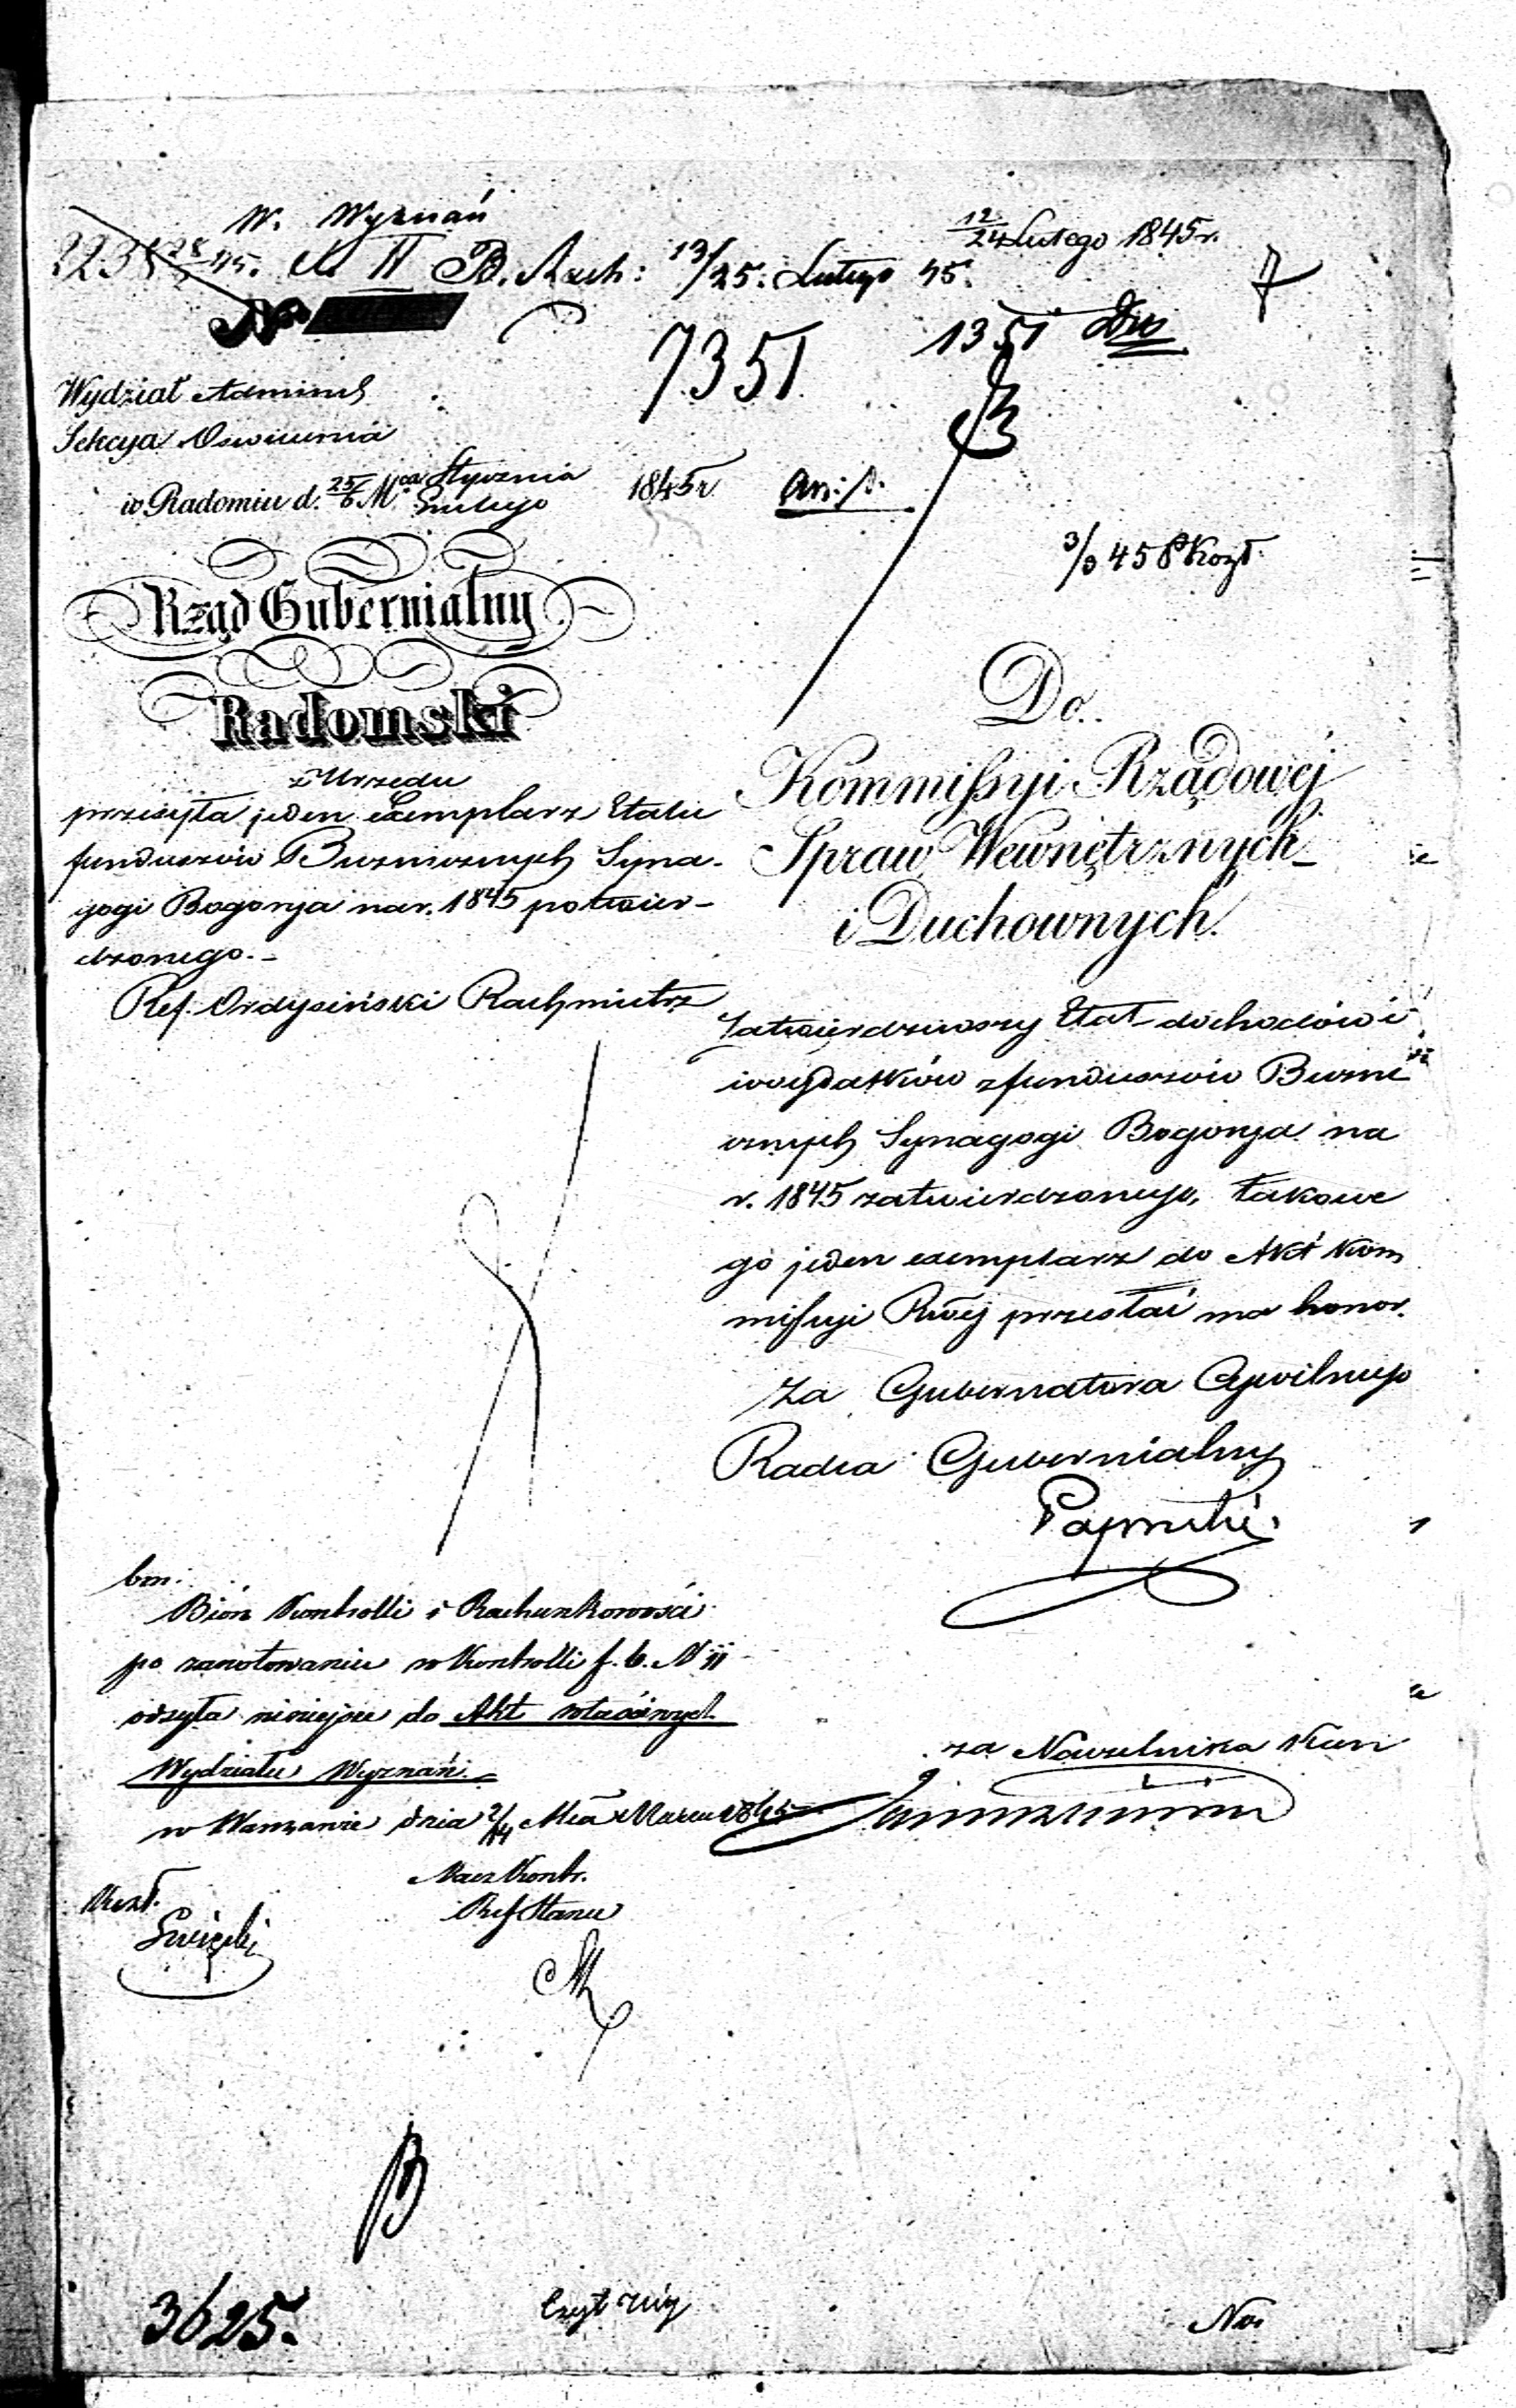 W. Wyznań
12/24 Lutego 1845 r.
N II B. Rach: 13/25. Lutego 45.
7
No
7351
1351
Wydział Administ.
Sekcya Oswiecenia
w Radomiu d. 25/6 Mca Stycznia/Lutego 1845 r.
3/3 45
Rząd Gubernialny
Radomski
z Urzędu
przesyła jeden exemplarz Etatu
funduszów Bużnicznych Syna-
gogi Bogorya na r. 1845 potwier-
dzonego.-
Ref. Ordysiński Rachmistrz
Do
Kommissyi Rządowéj
Spraw Wewnętrznych
i Duchownych.
Zatwierdziwszy Etat dochodów i
wydatków z funduszów Bużni
cznych Synagogi Bogorya na
r. 1845 zatwierdzonego, takowe
go jeden exemplarz do Akt Kom
missyi Rwéj przesłać ma honor.
Za Gubernatora Cywilnego
Radca Gubernialny
bm:
Biór Kontrolli i Rachunkowości
po zanotowaniu w Kontrolli f. b. N II
odsyła niniejsze do Akt właściwych
Wydziału Wyznań
w Warszawie dnia 2/14 Mca Marca 1845
za Naczelnika Kan
Nacz Kontr.
Ref Stanu
B
3625.
No.